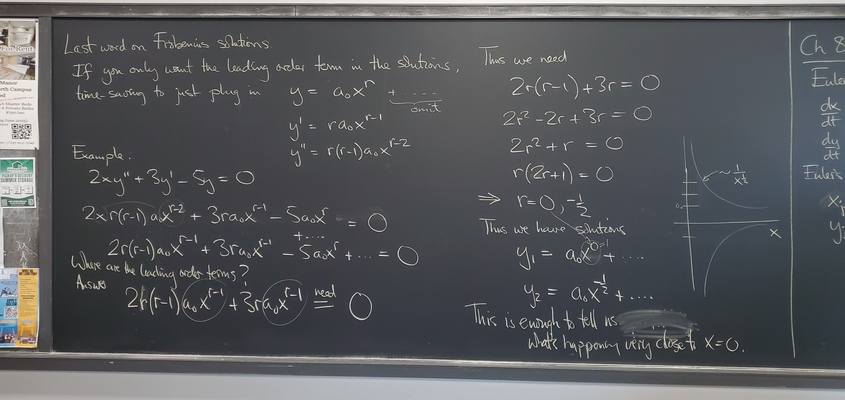 Last word on Frobenius solutions.
If you only want the leading order term in the solutions,
time-saving to just plug in y = a₀x^r + ....
omit
y' = ra₀x^(r-1)
y'' = r(r-1)a₀x^(r-2)
Example:
2xy'' + 3y' - 5y = 0
2xr(r-1)a₀x^(r-2) + 3ra₀x^(r-1) - 5a₀x^r = 0
+....
2r(r-1)a₀x^(r-1) + 3ra₀x^(r-1) - 5a₀x^r + ... = 0
Where are the leading order terms?
Answer
2r(r-1)a₀x^(r-1) + 3ra₀x^(r-1) need = 0
Thus we need
2r(r-1) + 3r = 0
2r² - 2r + 3r = 0
2r² + r = 0
r(2r+1) = 0
⇒ r = 0, -1/2
Thus we have solutions
y₁ = a₀x^0 + ....
y₂ = a₀x^(-1/2) + ....
This is enough to tell us
what's happening very close to x=0.
~ 1/x^(1/2)
x
Ch 8
Euler
dx/dt
dy/dt
Euler's